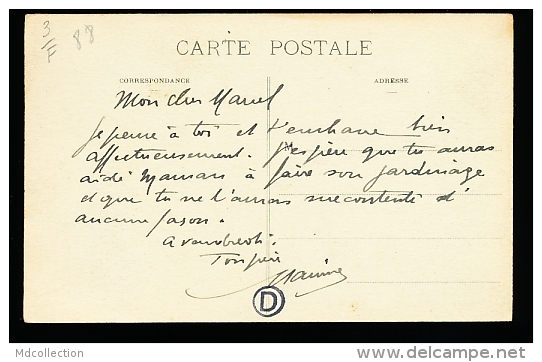 3/F 88
CARTE POSTALE
CORRESPONDANCE
ADRESSE
Mon cher Marcel
Je pense à toi et t'embrasse bien
affectueusement. J'espère que tu auras
aidé Maman à faire son jardinage
et que tu ne l'auras mecontenté d'
aucune façon.
A vendredi.
Ton père
D
Mdcollection
http://www.delcampe.net